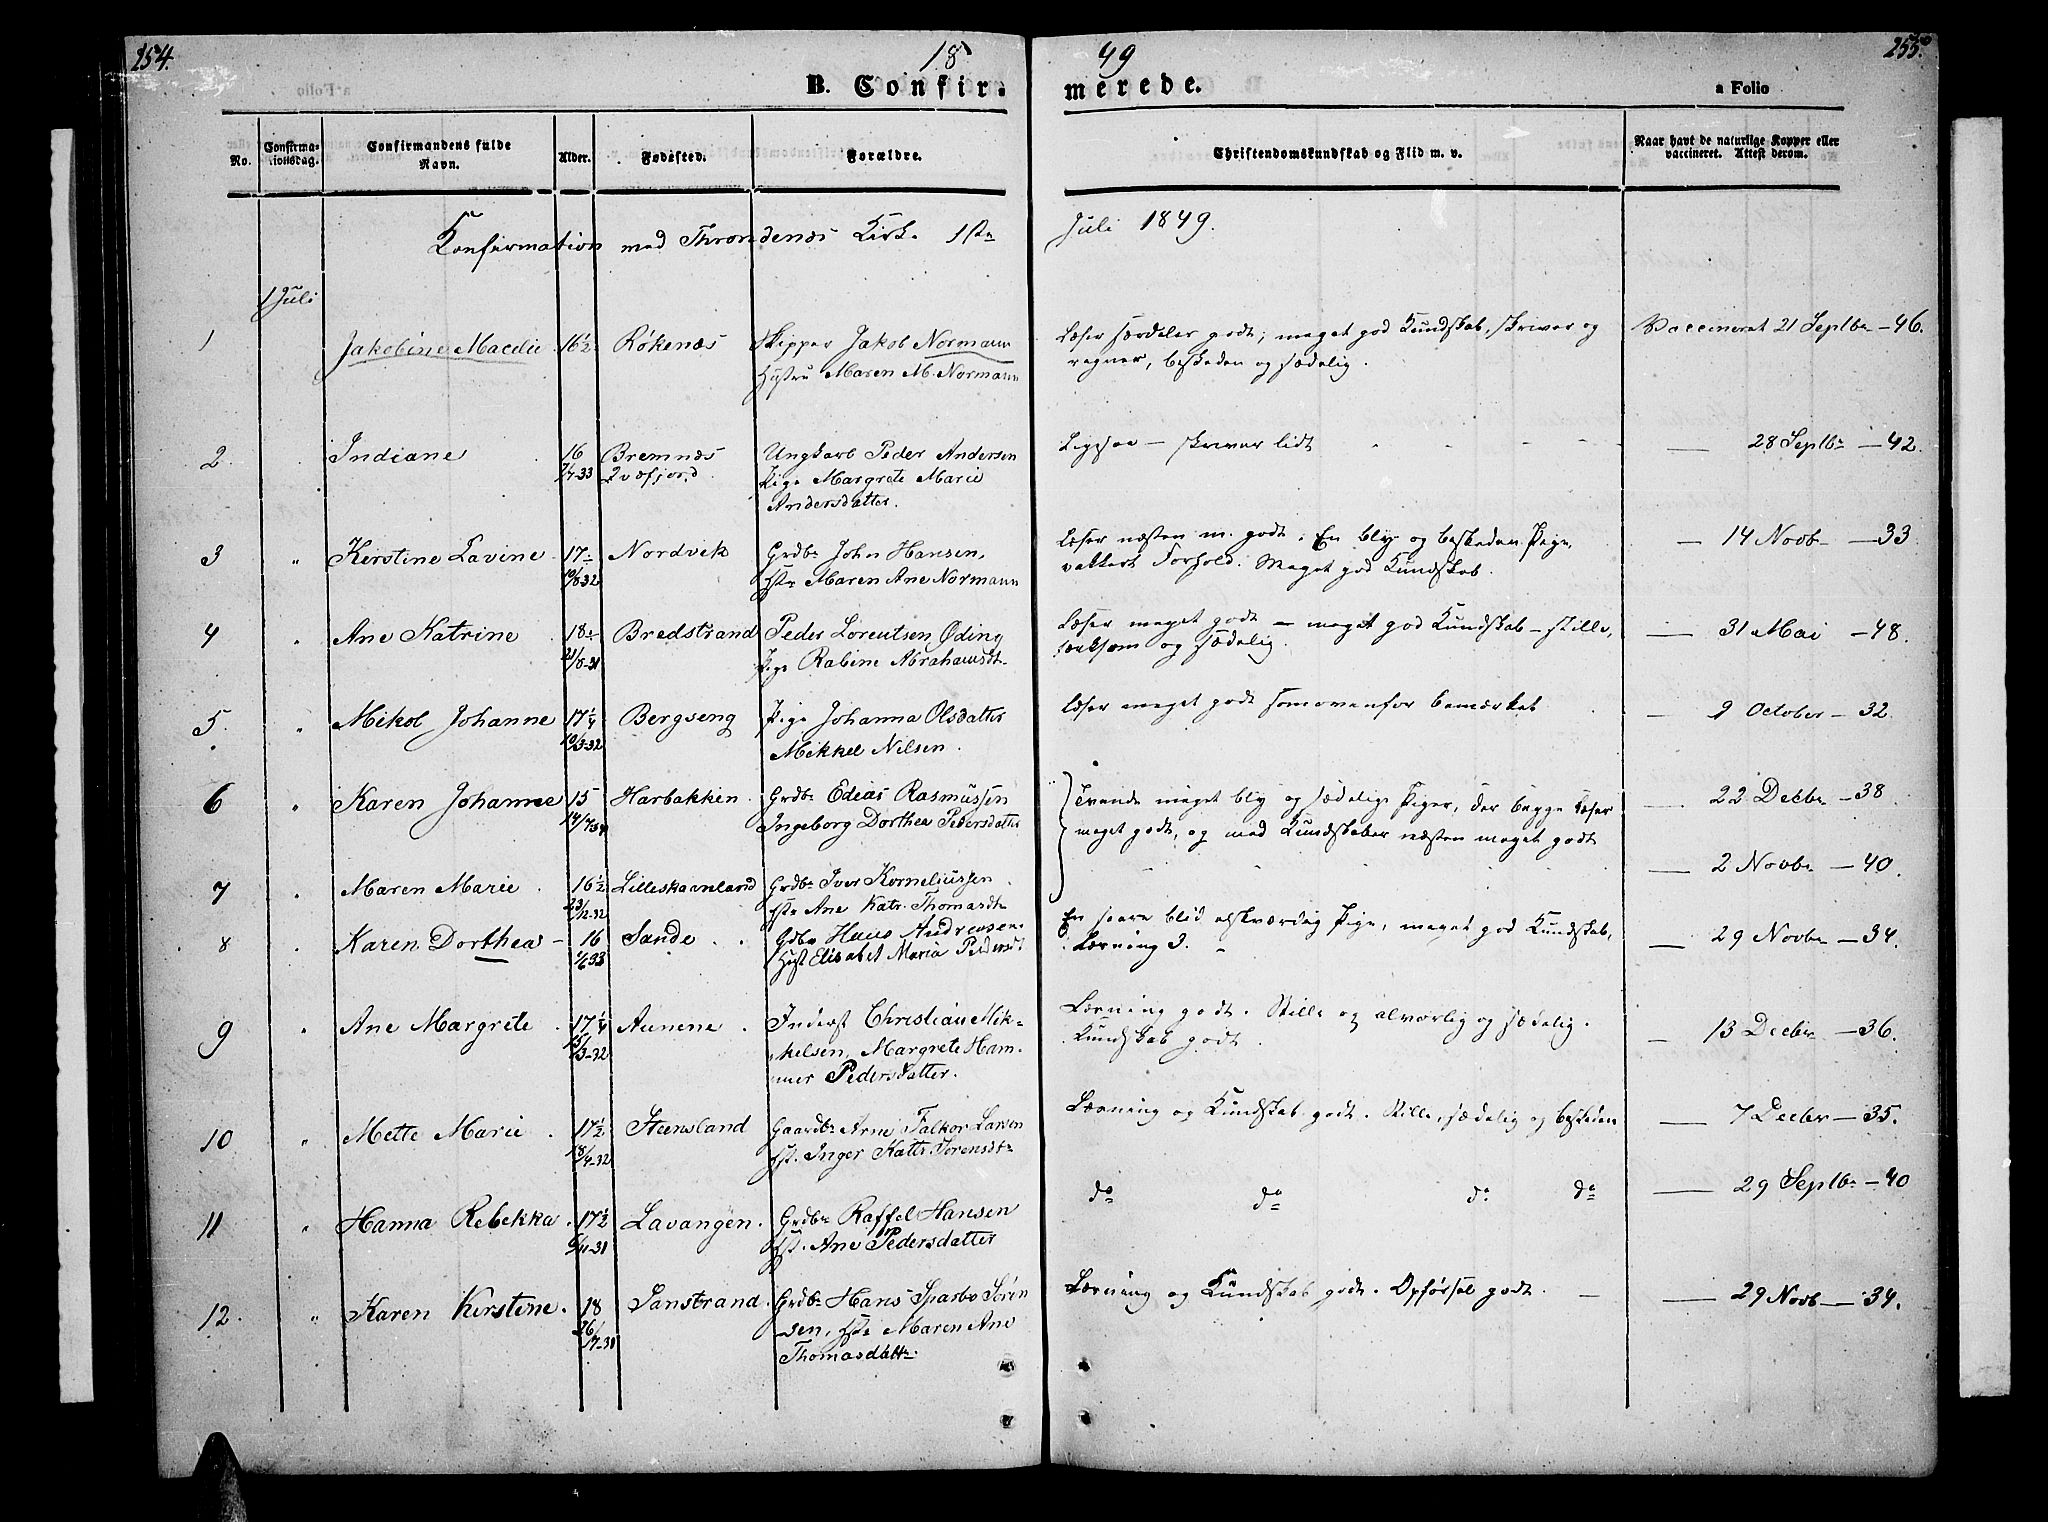 254.
18
49
255.
B. Confir.
merede.
a Folio
No.
Confirma-
tionsdag.
Confirmandens fulde
Navn.
Alder.
Fødested.
Forældre.
Christendomskundskab og Flid m. v.
Naar havt de naturlige Kopper eller
vaccineret. Attest derom.
Konfirmation ved Throndenæs Kirke 1ste
Juli 1849.
1 Juli
1
Jakobine 16 1/2 Røkenæs Skipper Jakob Normann
Hustru Maren M. Normann
Læser særdeles godt; meget god Kundskab, skriver og
regner, beskeden og sædelig.
Vaccineret 21 Septbr - 46.
2. Indiane 16 Bremnæs Ungkarl Peder Andersen
Qvæfjord Pige Margrete Marie
Andersdatter.
Ligesaa - skriver lidt
— 28 Septbr - 42.
3 " Kerstine Lavine 17 Nordvik Grdbr John Hansen,
Hstr Maren Ane Normann
Læser næsten m. godt; En bly og beskeden Pige,
vakkert Forhold. Meget god Kundskab.
— 14 Novb - 33
4 " Ane Katrine 18 Bredstrand Peder Lorentsen Øding
21/6-31 Pige Rabine Abrahamsdt.
Læser meget godt - meget god Kundskab - stille,
og sædelig.
— 31 Mai - 48.
5. " Mikol Johanne 17 1/4 Bergseng Pige Johanna Olsdatter
10/3-32 Mekkel Nilsen.
Læser meget godt som ovenfor bemærket
— 9 October - 32.
6 " Karen Johanne 15 Harbakken. Grdbr Edias Rasmussen
14/7 34 Ingeborg Dorthea Pedersdatter
Tvende meget bly og sædelige Piger, der begge læser
meget godt, og med Kundskaber næsten meget godt
— 22 Decbr - 38
7 " Maren Marie. 16 1/2 Lilleskaanland Grdbr Iver Korneliussen
23/12-32 Hstr Ane Katr. Thomasdtr
— 2 Novbr - 40.
8 Karen Dorthea - 16 Sande. Gdbr Hans Andreasen
1/6 33 Hust Elisabet Maria Pedersdt
En saare blid elskværdig Pige, meget god Kundskab,
Læsning 3.
— 29 Novbr - 34.
9 " Ane Margrete. 17 1/4 Aunene. Inderst Christian Mik-
15/3-32 kelsen, Margrete Ham-
mer Pedersdatter.
Læsning godt. Stille og alvorlig og sædelig.
Kundskab godt.
— 13 Decbr - 36.
10 " Mette Marie. 17 1/2 Steensland Gaardbr Arne Falkor Larsen
18/4-32 Hst. Inger Katr. Sørensdtr
Læsning og Kundskab godt. Stille, sædelig og beskeden
— 7 Decbr - 35.
11 " Hanna Rebekka. 17 1/2 Lavangen. Grdbr Raffel Hansen
6/11-31 Hst. Ane Pedersdatter
do do do do
— 29 Septbr - 40
12. " Karen Kirstine. 18 Sanstrand. Grdbr Hans Sparbo Sören
sen, Hstr Maren Ane
Thomasdattr.
Læsning og Kundskab godt. Opførsel godt.
— 29 Novb - 34.